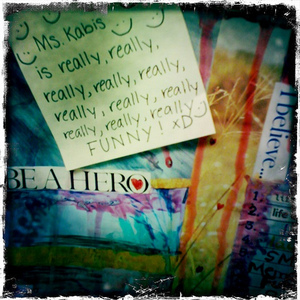 Ms. Kabis
is really, really,
really, really, really,
really, really, really
really, really, really
FUNNY! xD
BE A HERO
I believe...
1.
2.
life
3.